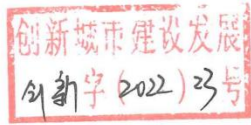 创新城市建设发展
创新字(2022)23号